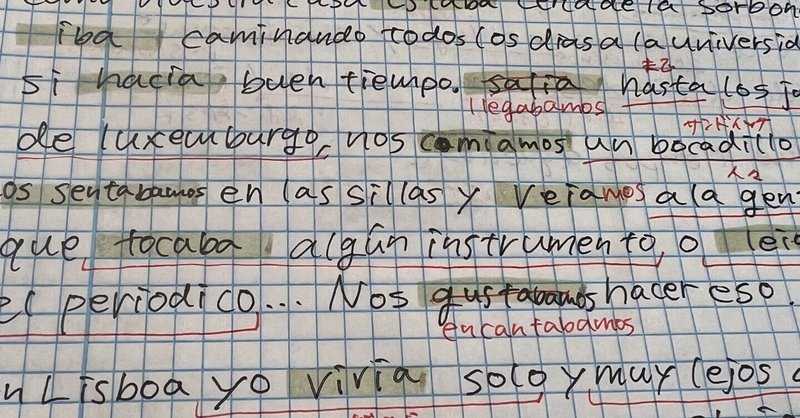 iba caminando todos los dias a la universid
si hacía buen tiempo. salia hasta los jo
llegabamos
de luxemburgo, nos comiamos un bocadillo
サンドイッチ
os sentabamos en las sillas y veiamos a la gen
人々
que tocaba algún instrumento, o leía
el periodico... Nos gustabamos hacer eso.
encantabamos
n Lisboa yo vivía solo y muy lejos